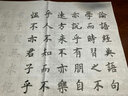 論語經典語句
學而時習之不
亦說乎有朋自
遠方來不亦樂
乎人不知而不
慍不亦君子乎